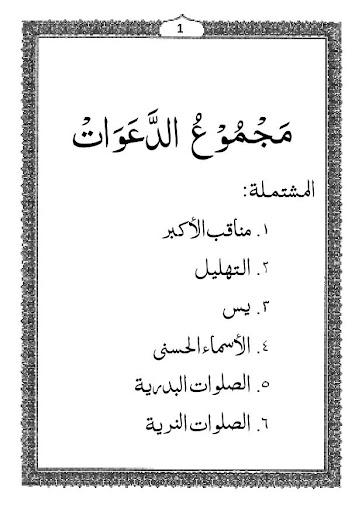 1
مَجْمُوْعُ الدَّعَوَاتْ
المشتملة:
١. مناقب الأكبر
٢. التهليل
٣. يس
٤. الأسماء الحسنى
٥. الصلوات البدرية
٦. الصلوات النرية